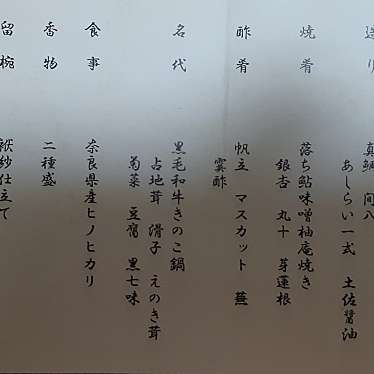 造り
真鯛 間八
あしらい一式 土佐醤油
焼肴
落ち鮎味噌柚庵焼き
銀杏 丸十 芽蓮根
酢肴
帆立 マスカット 蕪
霙酢
名代
黒毛和牛きのこ鍋
占地茸 滑子 えのき茸
菊菜 豆腐 黒七味
食事
奈良県産ヒノヒカリ
香物
二種盛
留椀
袱紗仕立て